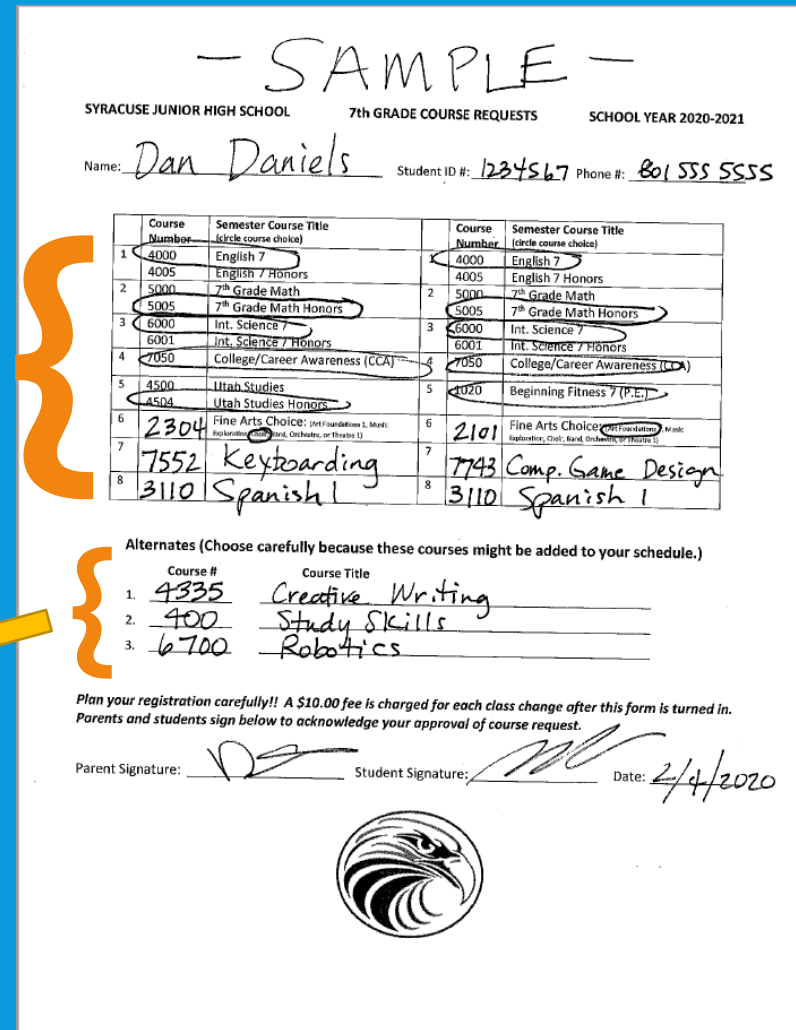 - SAMPLE -
SYRACUSE JUNIOR HIGH SCHOOL 7th GRADE COURSE REQUESTS SCHOOL YEAR 2020-2021
Name: Dan Daniels Student ID #: 1234567 Phone #: 801 555 5555
Course Number Semester Course Title (circle course choice) Course Number Semester Course Title (circle course choice)
1 4000 English 7 1 4000 English 7
4005 English 7 Honors 4005 English 7 Honors
2 5000 7th Grade Math 2 5000 7th Grade Math
5005 7th Grade Math Honors 5005 7th Grade Math Honors
3 6000 Int. Science 7 3 6000 Int. Science 7
6001 Int. Science 7 Honors 6001 Int. Science 7 Honors
4 7050 College/Career Awareness (CCA) 4 7050 College/Career Awareness (CCA)
5 4500 Utah Studies 5 4020 Beginning Fitness 7 (P.E.)
4504 Utah Studies Honors
6 2304 Fine Arts Choice: (Art Foundations 1, Music 6 2101 Fine Arts Choice: (Art Foundations 1, Music
Exploration, Choir, Band, Orchestra, or Theatre 1) Exploration, Choir, Band, Orchestra, or Theatre 1)
7 7552 Keyboarding 7 7743 Comp. Game Design
8 3110 Spanish 1 8 3110 Spanish 1
Alternates (Choose carefully because these courses might be added to your schedule.)
Course # Course Title
1. 4335 Creative Writing
2. 400 Study Skills
3. 6700 Robotics
Plan your registration carefully!! A $10.00 fee is charged for each class change after this form is turned in.
Parents and students sign below to acknowledge your approval of course request.
Parent Signature: Student Signature: Date: 2/4/2020